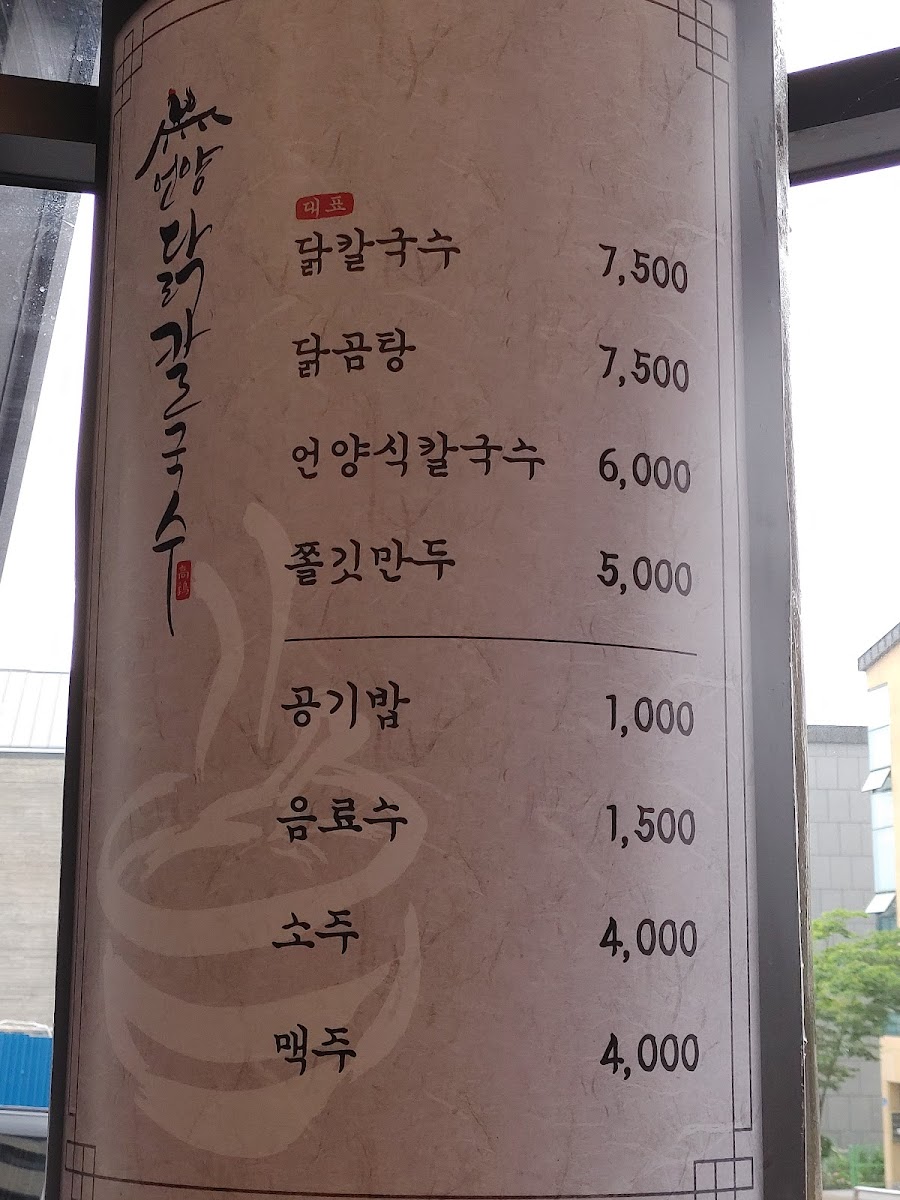 언양
닭칼국수
대표
닭칼국수 7,500
닭곰탕 7,500
언양식칼국수 6,000
쫄깃만두 5,000
공기밥 1,000
음료수 1,500
소주 4,000
맥주 4,000